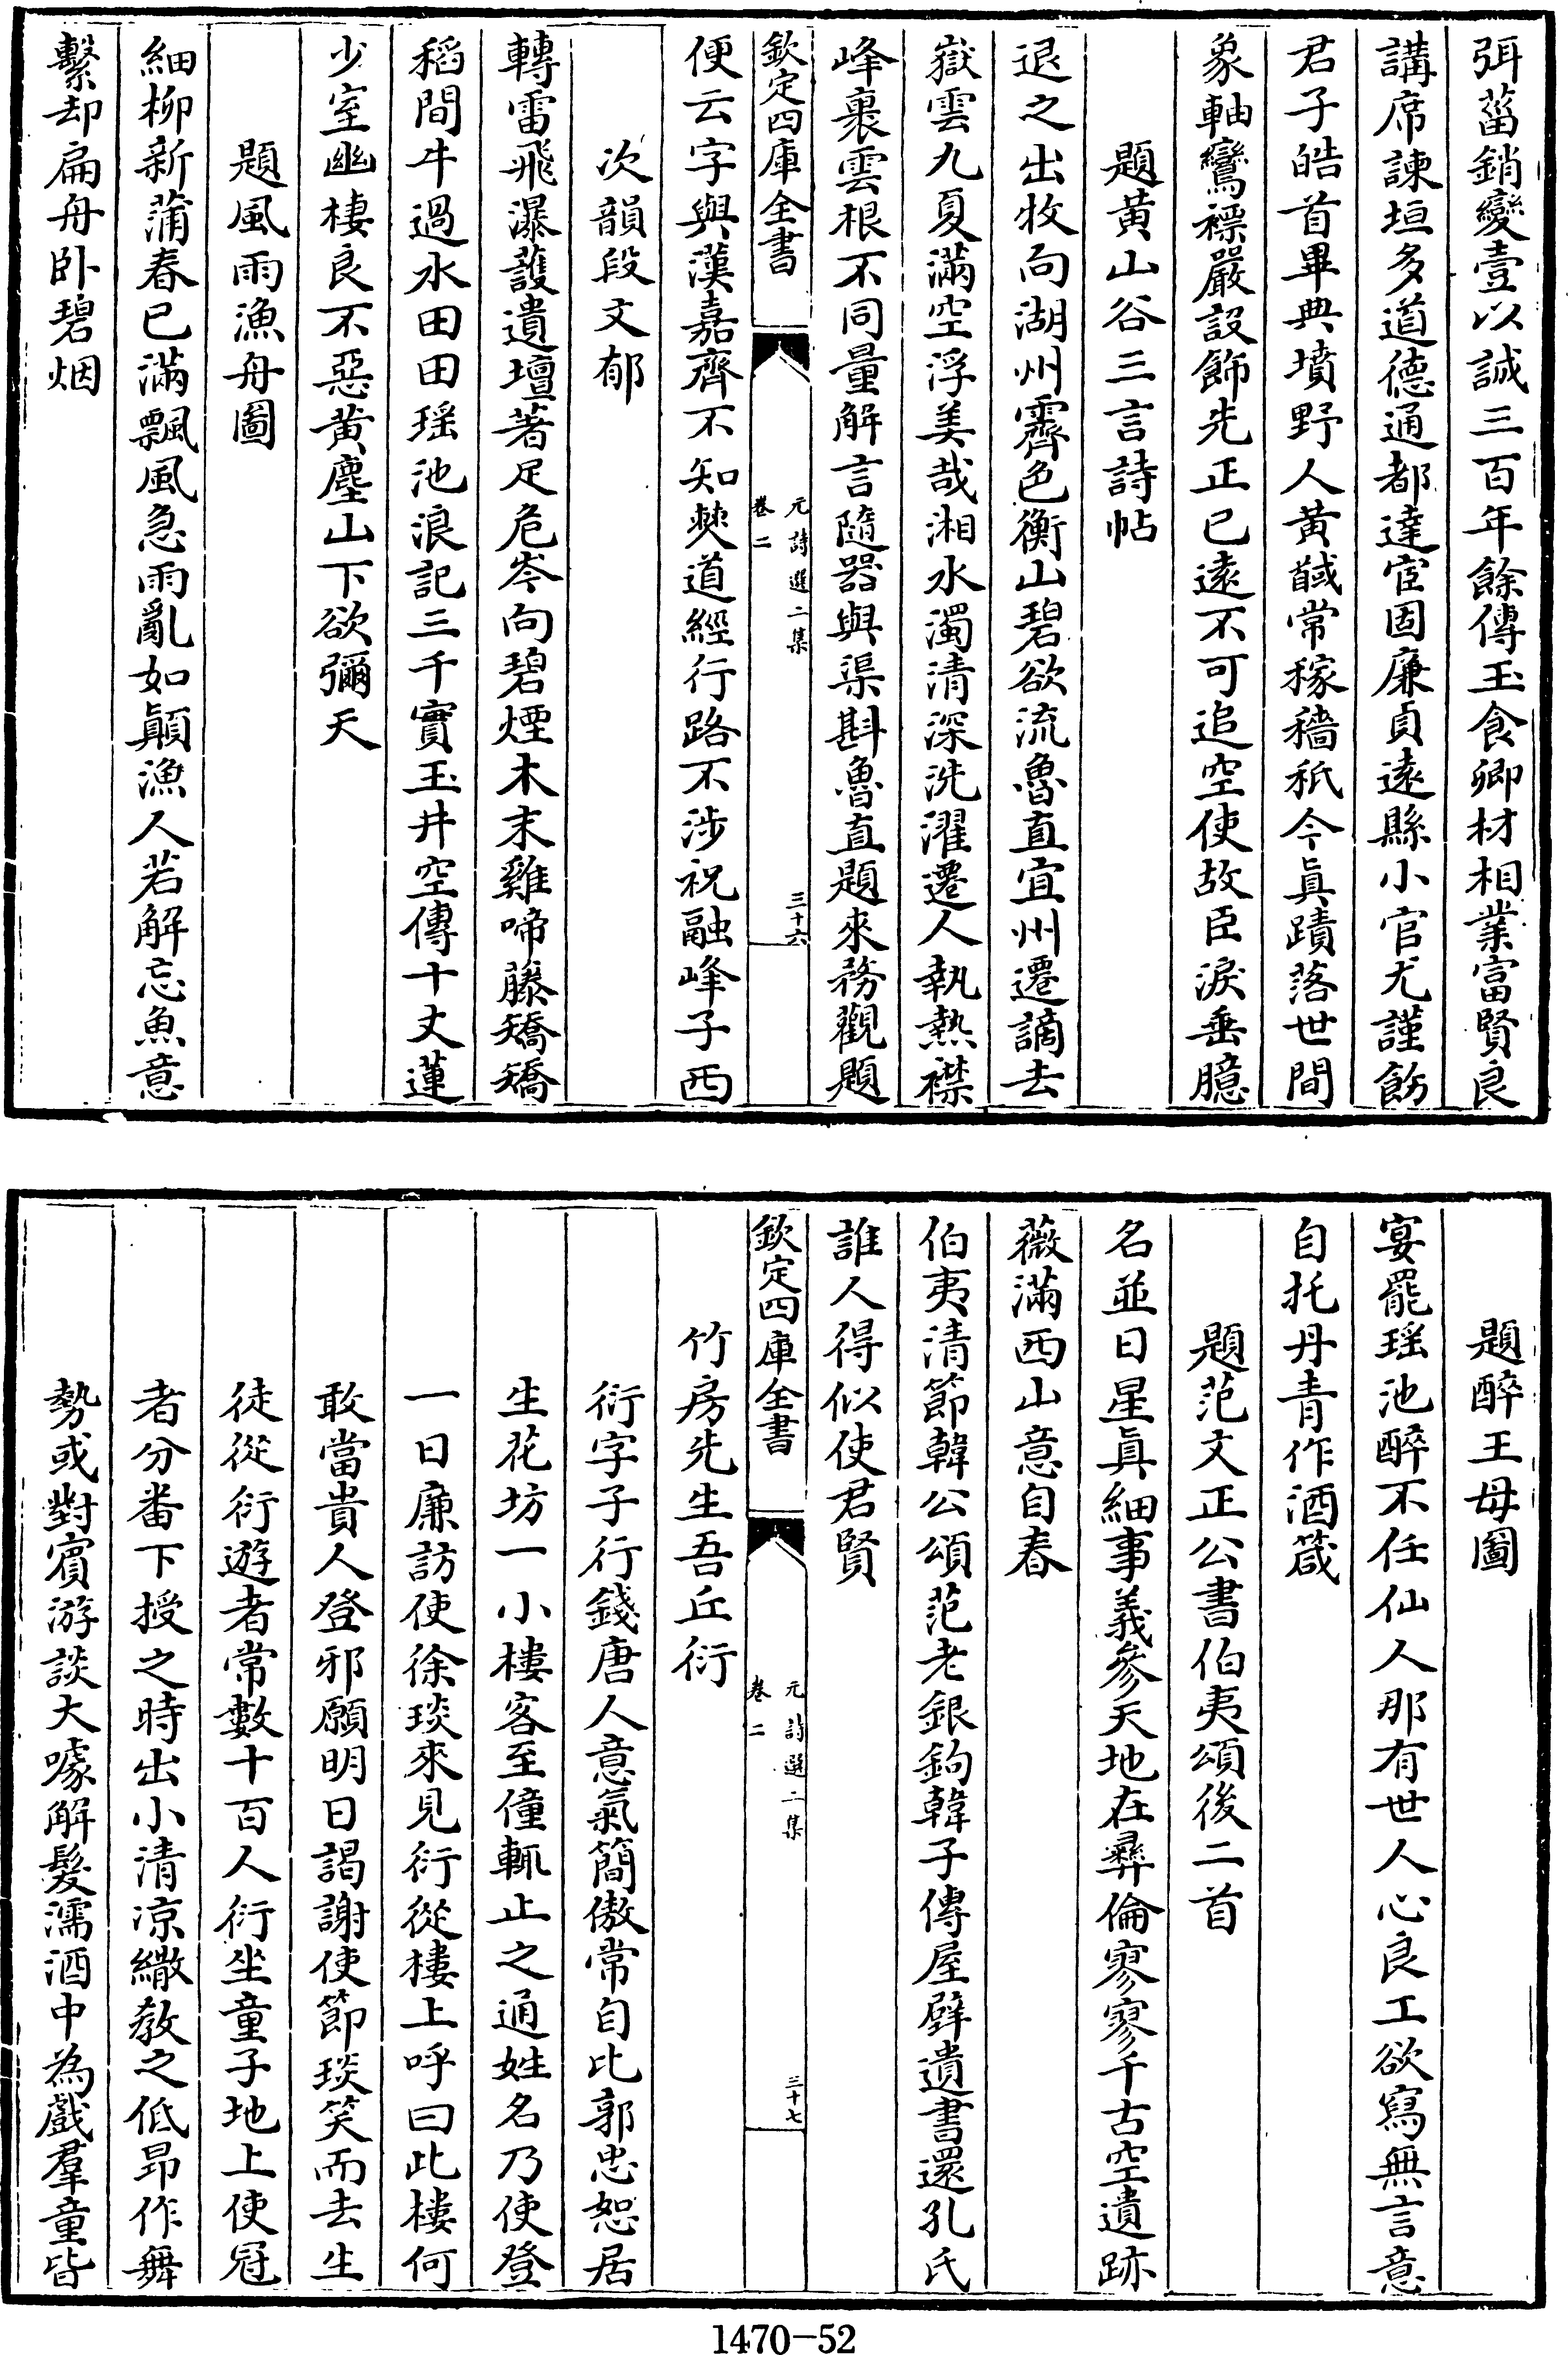 弭菑銷變壹以誠三百年餘傳玉食卿材相業富賢良
講席諫垣多道德通都達宦固廉貞遠縣小官尤謹飭
君子皓首畢典墳野人黃馘常稼穡秖今眞蹟落世間
象軸鸞褾嚴設飾先正已遠不可追空使故臣淚垂臆
題黃山谷三言詩帖
退之出牧向湖州霽色衡山碧欲流魯直宜州遷謫去
嶽雲九夏滿空浮美哉湘水濁清深洗濯遷人執熱襟
峰裏雲根不同量解言隨器與渠斟魯直題來務觀題
欽定四庫全書
元詩選二集
卷二
三十六
便云字與漢嘉齊不知僰道經行路不涉祝融峰子西
次韻段文郁
轉雷飛瀑護遺壇著足危岑向碧煙木末雞啼藤矯矯
稻間牛過水田田瑶池浪記三千實玉井空傳十丈蓮
少室幽棲良不惡黃塵山下欲彌天
題風雨漁舟圖
細柳新蒲春已滿飄風急雨亂如顚漁人若解忘魚意
繫却扁舟卧碧烟
題醉王母圖
宴罷瑶池醉不任仙人那有世人心良工欲寫無言意
自托丹青作酒箴
題范文正公書伯夷頌後二首
名並日星眞細事義參天地在彞倫寥寥千古空遺跡
薇滿西山意自春
伯夷清節韓公頌范老銀鉤韓子傳屋壁遺書還孔氏
誰人得似使君賢
欽定四庫全書
元詩選二集
卷二
三十七
竹房先生吾丘衍
衍字子行錢唐人意氣簡傲常自比郭忠恕居
生花坊一小樓客至僮輒止之通姓名乃使登
一日廉訪使徐琰來見衍從樓上呼曰此樓何
敢當貴人登邪願明日謁謝使節琰笑而去生
徒從衍遊者常數十百人衍坐童子地上使冠
者分番下授之時出小清凉繖敎之低昂作舞
勢或對賓游談大噱解髮濡酒中為戲羣童皆
1470-52